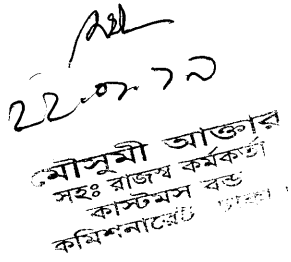 ২২.০১.১৯
মৌসুমী আক্তার
সহঃ রাজস্ব কর্মকর্তা
কাস্টমস বন্ড
কমিশনারেট ঢাকা